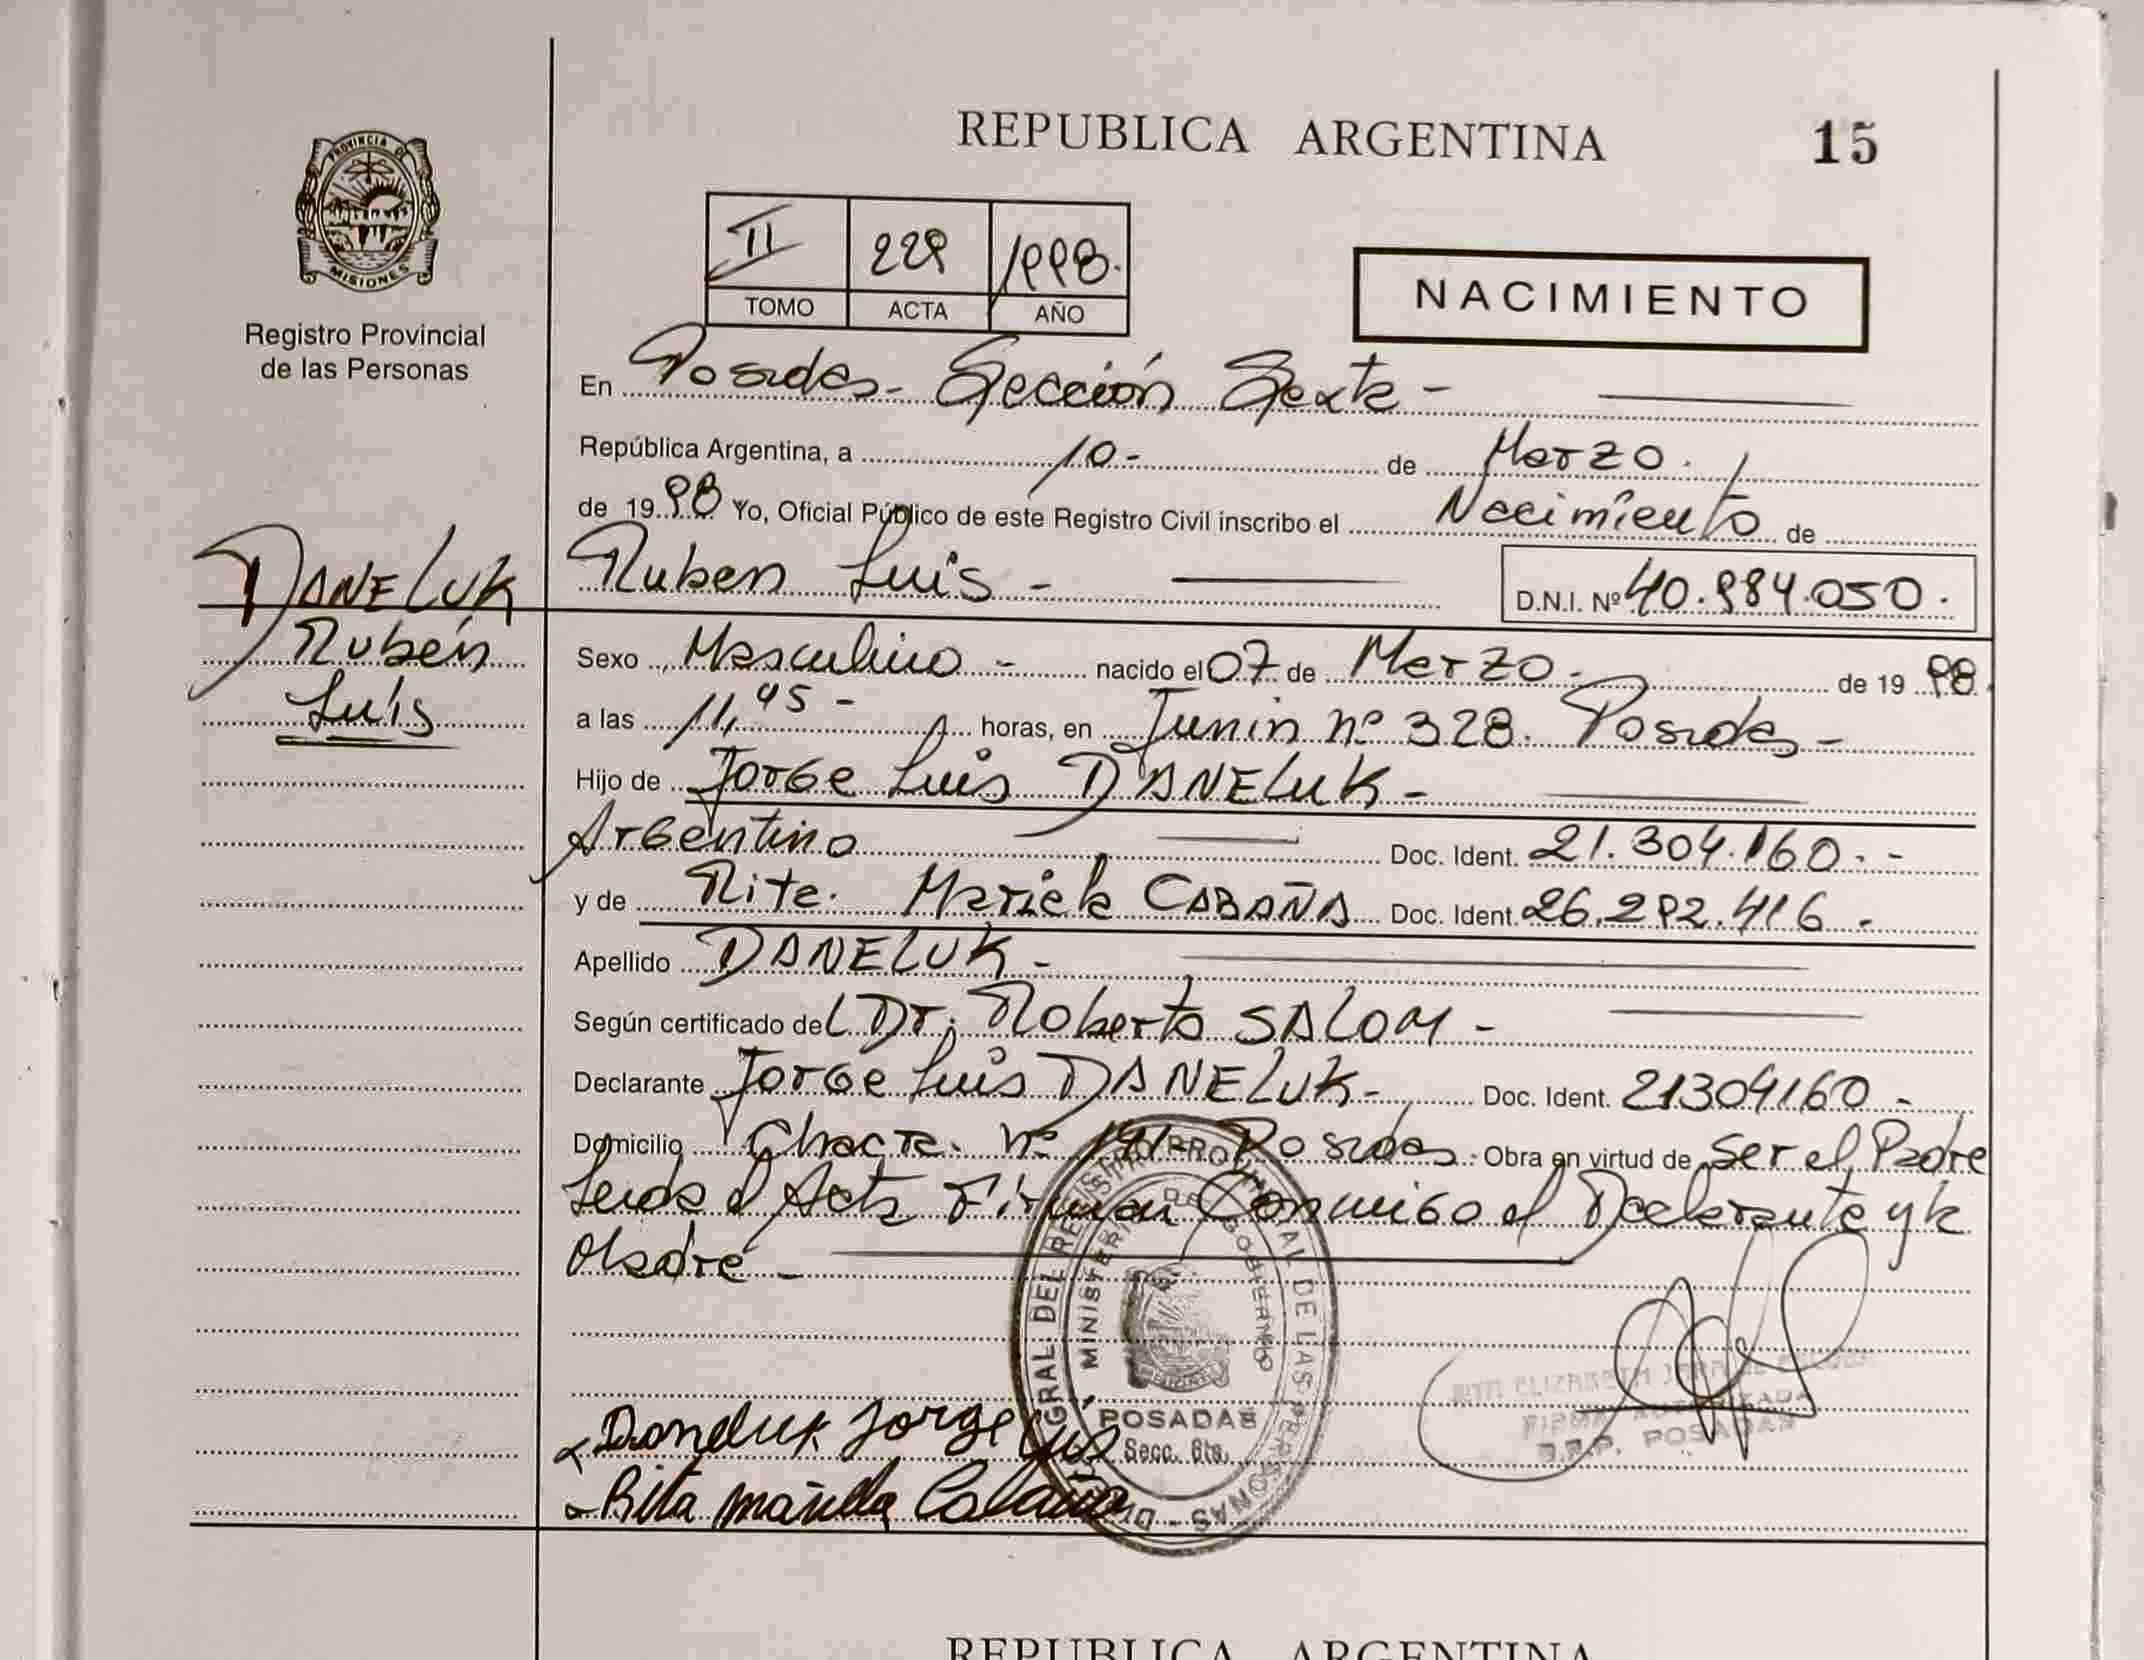 REPUBLICA ARGENTINA
15
PROVINCIA DE
MISIONES
Registro Provincial
de las Personas
II 229 1998.
TOMO ACTA AÑO
NACIMIENTO
En Posadas - Sección Sexta -
República Argentina, a 10 - de Marzo.
de 1998 Yo, Oficial Público de este Registro Civil inscribo el Nacimiento de
DANELUK
Rubén
Luis
Ruben Luis -
D.N.I. Nº 40.984.050.
Sexo Masculino - nacido el 07 de Marzo - de 1998.
a las 11,45 - horas, en Junin nº 328. Posadas -
Hijo de Jorge Luis DANELUK -
Argentino Doc. Ident. 21.304.160. -
y de Rita. Mariela CABAÑA Doc. Ident. 26.292.416 -
Apellido DANELUK -
Según certificado del Dr. Roberto SALOM -
Declarante Jorge Luis DANELUK - Doc. Ident. 21304160 -
Domicilio Chacra. nº 191 Posadas. Obra en virtud de Ser el Padre
Leida el Acta Firman Conmigo el Declarante y la
Madre -
REGISTRO PROVINCIAL DE LAS PERSONAS -
GRAL. DEL
MINISTERIO DE GOBIERNO
POSADAS
Secc. 6ta.
ELIZABETH
FIRMA AUTORIZADA
R.P. POSADAS
Daneluk Jorge Luis
Rita mariela Cabaña
REPUBLICA ARGENTINA